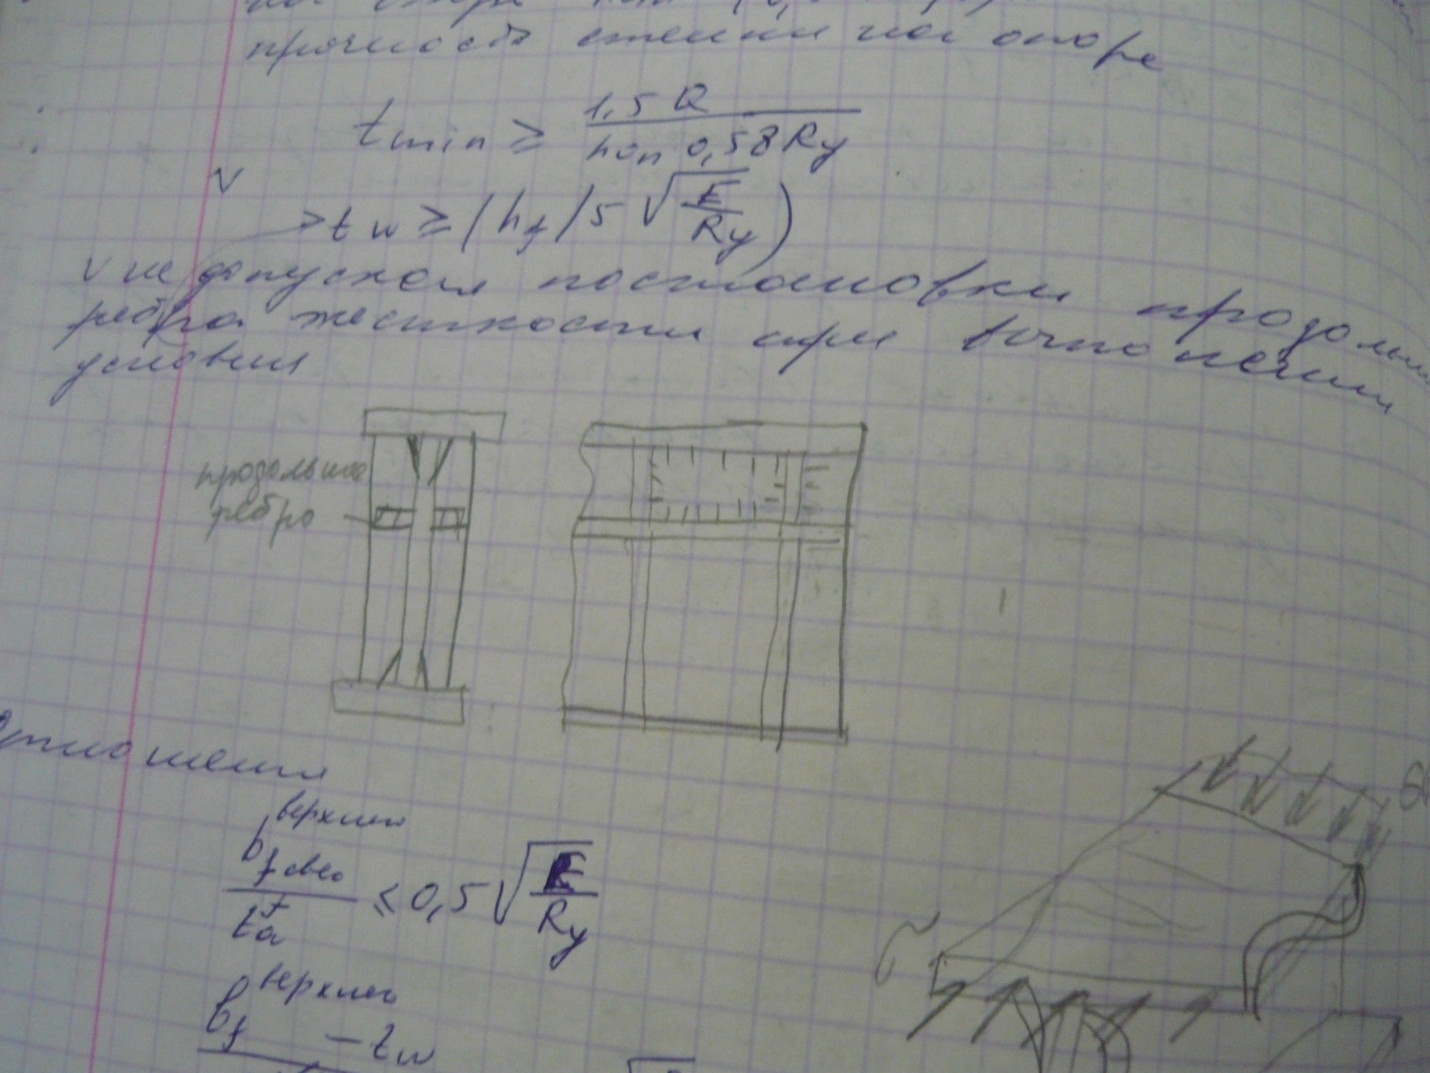 прочность стенки на опоре
t min ≥ 1,5 Q / hоп 0,58 Ry
V
t w ≥ (hf / 5 √ E / Ry )
V не допуская постановки продольн
ребра жесткости при выполнении
условия
продольное
ребро
Отношения
верхнего
bf свес / tf ≤ 0,5 √ E / Ry
верхнего
bf − tw